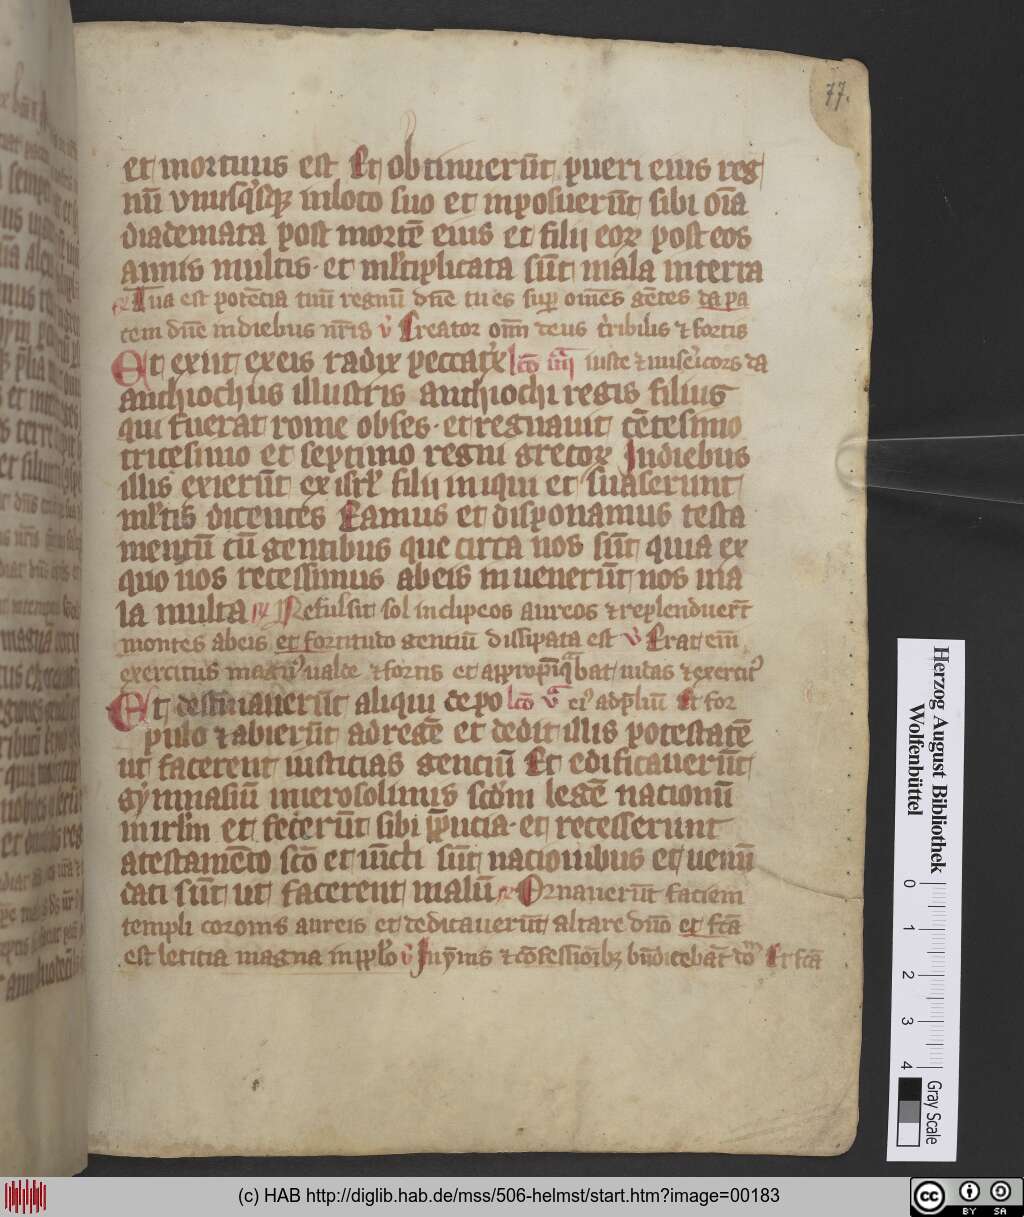 77.
et mortuus est Et obtinuerūt pueri eius reg
nū vnusqͥsqꝫ inloco suo et inposuerūt sibi oīa
diademata post mortē eius et filii eoꝝ post eos
annis multis · et mͬltiplicata sūt mala interra
Tua est potēcia tuū regnū dn̄e tu es suꝑ om̄es gētes da pa
cem dn̄e indiebus nr̄is v̾ Creator om̄ deus tͬribilis ⁊ fortis
Et exiit exeis radix peccatͬx lc̄o iiij iuste ⁊ miseͬicors da
anthiochus illustris anthiochi regis filius
qui fuerat rome obses · et regnauit cētesimo
tricesimo et septimo regni grecoꝝ Indiebus
illis exierūt ex isrl̓ filii iniqui et suaserunt
ml̓tis dicentes Eamus et disponamus testa
mentū cū gentibus que circa nos sūt quia ex
quo nos recessimus abeis inuenerūt nos ma
la multa ℟ Refulsit sol inclipeos aureos ⁊ resplenduer̄t
montes abeis et fortitudo gentiū dissipata est v̾ Erat em̄
exercitus magn᷒ ualde ⁊ fortis et appropīqͣbat iudas ⁊ exercit᷒
Et destinauerūt aliqui depo lc̄o vͣ ei᷒ adp̄liū Et for
pulo ⁊ abierūt adregē et dedit illis potestatē
ut facerent iusticias genciū Et edificauerūt
gymnasiū inierosolimis scdm̄ legē nacionū
et fecerūt sibi p̄pucia · et recesserunt
atestamēto sc̄o et iūcti sūt nacionibus et uenū
dati sūt ut facerent malū ℟ Ornauerūt faciem
templi coronis aureis et dedicauerūt altare dn̄o et fc̄a
est leticia magna inppl̓o v̾ Inȳnis ⁊ cōfessioībꝫ bn̄dicebāt dn̄o Et fcā
Herzog August Bibliothek
Wolfenbüttel
0 1 2 3 4
Gray Scale
(c) HAB http://diglib.hab.de/mss/506-helmst/start.htm?image=00183
cc BY SA